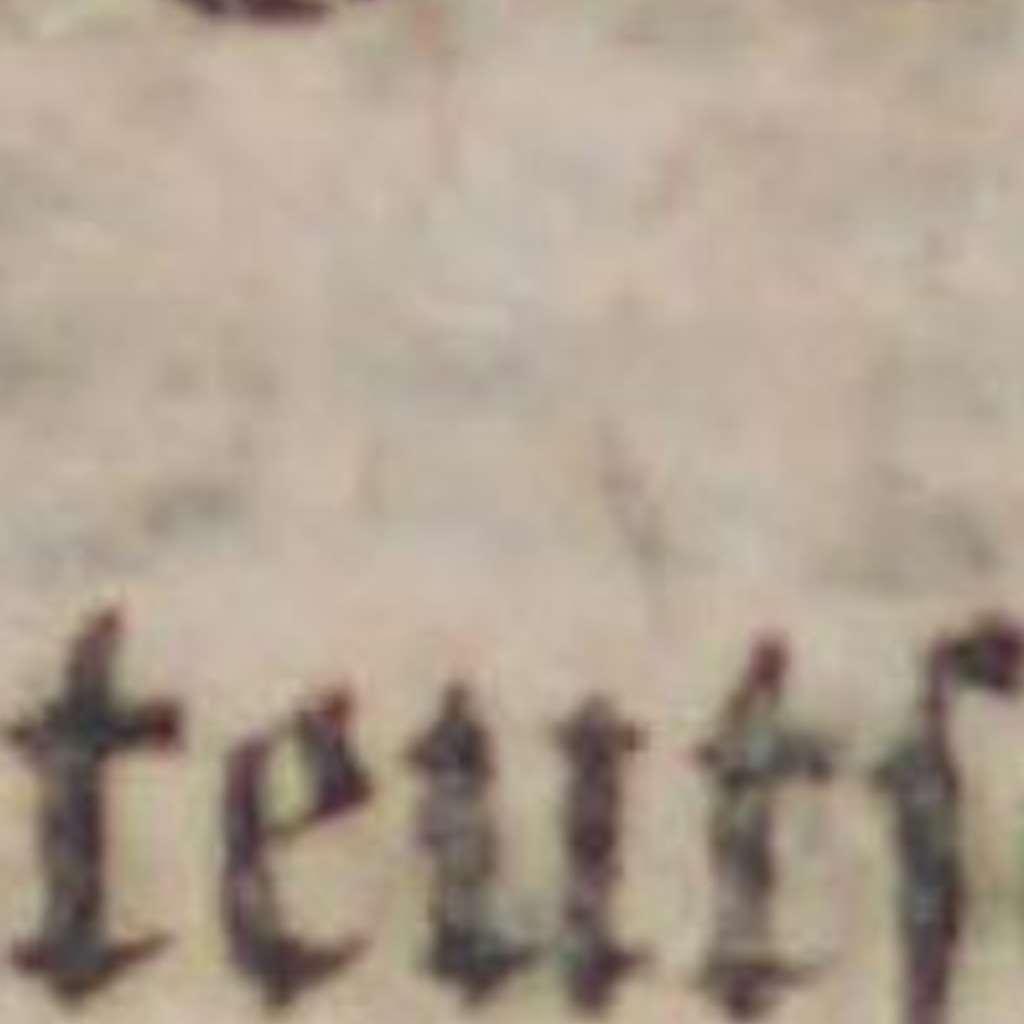 teutſ